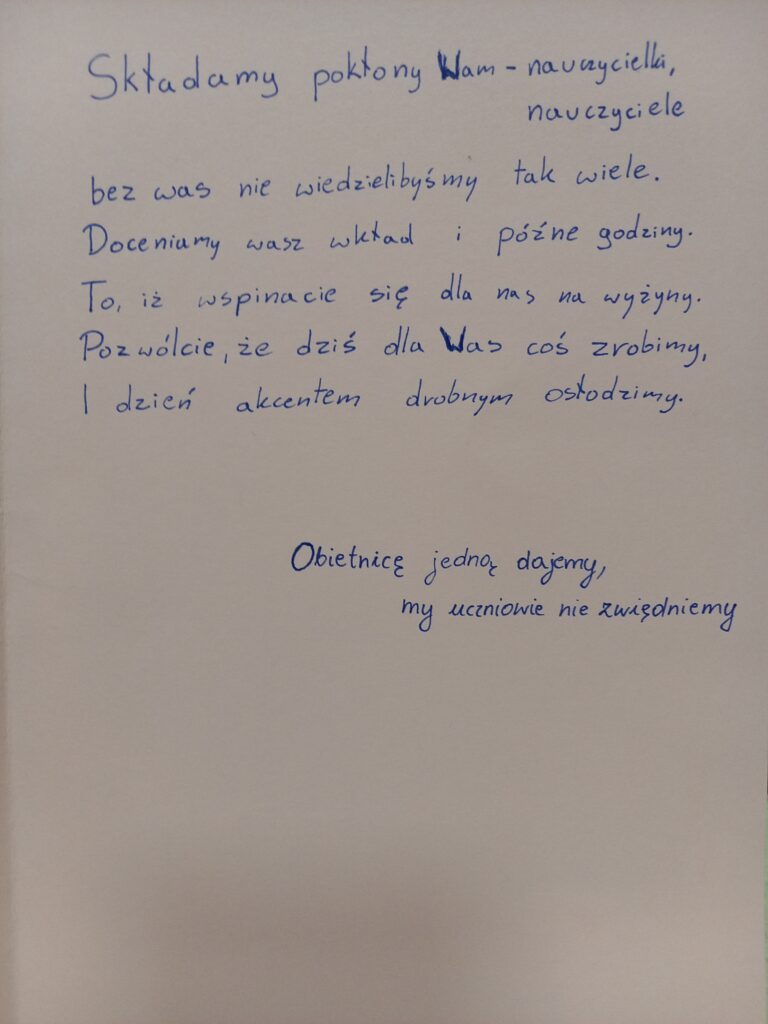 Składamy pokłony Wam - nauczycielki,
nauczyciele
bez was nie wiedzielibyśmy tak wiele.
Doceniamy wasz wkład i późne godziny.
To, iż wspinacie się dla nas na wyżyny.
Pozwólcie, że dziś dla Was coś zrobimy,
I dzień akcentem drobnym osłodzimy.
Obietnicę jedną dajemy,
my uczniowie nie zwiędniemy